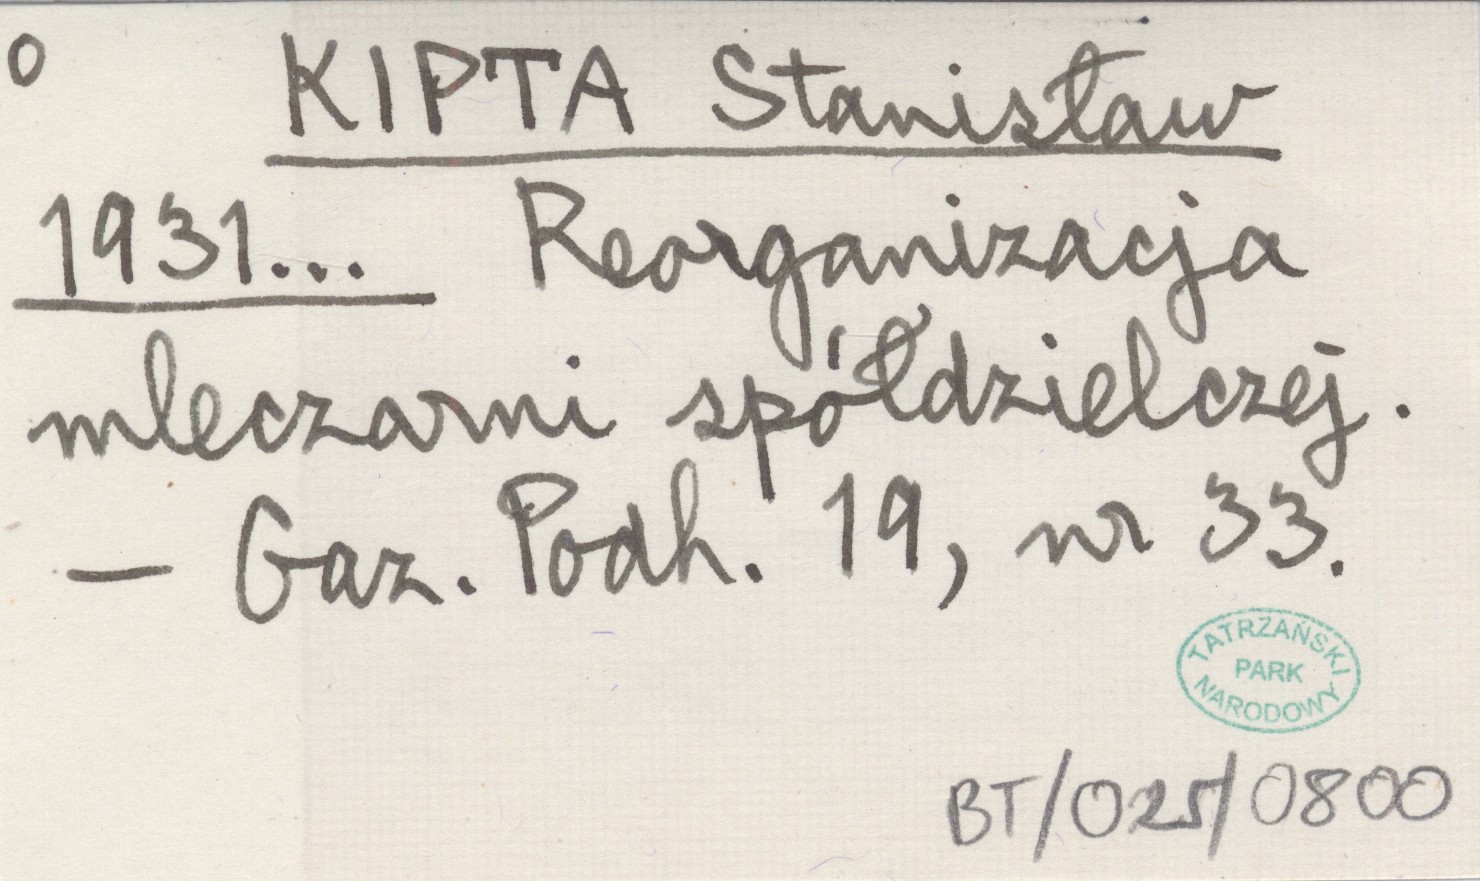 o KIPTA Stanisław
1931... Reorganizacja
mleczarni spółdzielczej.
— Gaz. Podh. 19, nr 33.
TATRZAŃSKI
PARK
NARODOWY
BT/025/0800